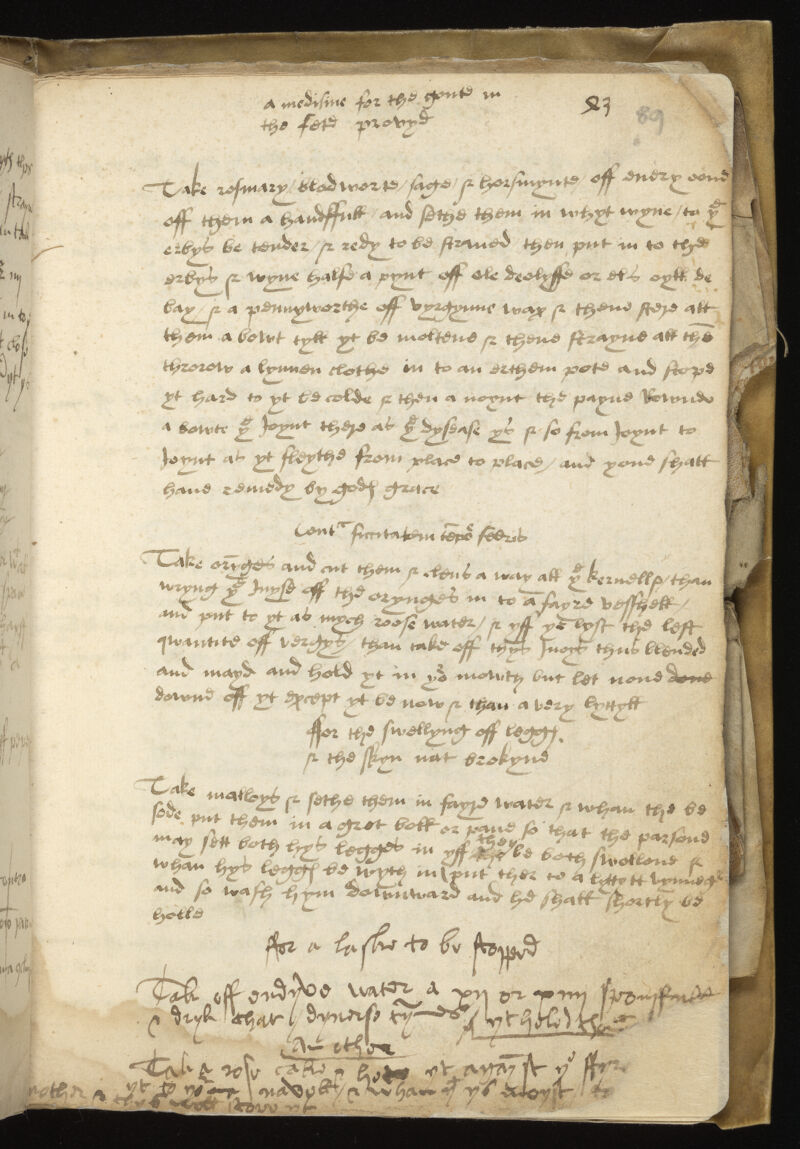 a medisine for the goute in
the fete provyd
89
Take rosmary / blodworte / sage / & horsmynte / off every oone
off them a handffull / and sethe them in whyt wyne / to ye
erbys be tender / & redy to be strayned then put in to the
erbys & wyne halfe a pynt off ole deolyffe or els oyll de
bay / & a pennyworthe off vyrgynne wax & thene stere all
them a bowt tyll yt be moltene & thene strayne all them
throrow a lynnen clothe in to an erthern pote and stope
yt hard to yt be colde & then a noynt the payne Rownde
a bowte ye Joynt there as ye dysease ys & so from Joynt to
Joynt as yt fleythe from place to place / and youe shall
have remedy by gods grace
Contra siccitatem febris
Take orynges and cut them & clens a way all ye kernells / than
wryng ye Juyse off the orynges in to a fayre vesshell /
and put to yt as mych roose water / & yff ye lyst the lest
qwantite off vergys / than take off thys Juoys thus blended
and mayd and hold yt in yor mowth but let none done
downe off yt except yt be now & than a very lyttyll
ffor the swellyng off leggs
& the skyn nat brokyne
Take malloys & sethe them in fayre water & whan the be
sode put them in a gret boll or pane so that the parsone
may sett both hys legges in yff they the be both swollone &
whan hys leggs be wyth in put ther to a lytyll vyneger
and so wash hym downward and he shall shortly be
holle
ffor a laske to be stopped
Take off endyve water a xij or xiiij sponffulls
& dryk that dyverse tymes yt holdith
An other
Take a rose cake & hete yt agaynst ye ffyre
yt to navell / & whan yt ys moyst to